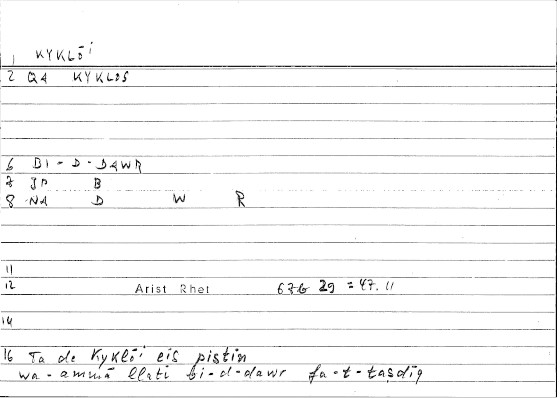 1 KYKLŌI
2 QA KYKLOS
6 BI-D-DAWR
7 JP B
8 NA D W R
11
12 Arist Rhet 67b 29 = 47.11
14
16 Ta de Kyklōi eis pistin
wa-ammā llati bi-d-dawr fa-t-taṣdiq